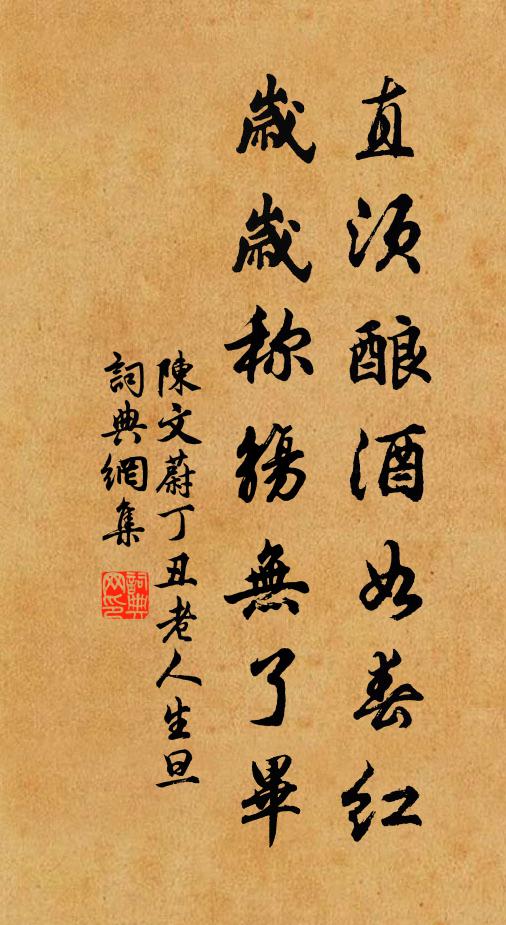 直须酿酒如春红
歲歲称觴無了畢
陳文蔚丁丑老人生旦
詞典網集
詞典网印